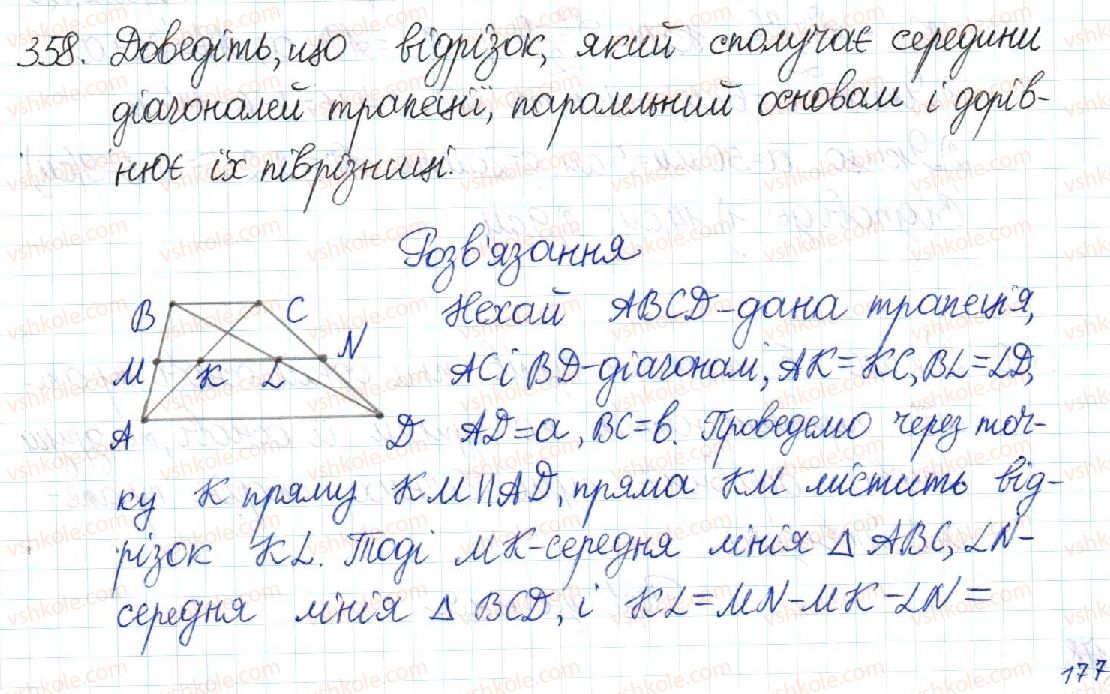 358. Доведіть, що відрізок, який сполучає середини
діагоналей трапеції, паралельний основам і дорів-
нює їх піврізниці.
Розв'язання
B C
M K L N
A D
Нехай ABCD-дана трапеція,
AC і BD-діагоналі, AK=KC, BL=LD,
AD=a, BC=b. Проведемо через точ-
ку K пряму KM||AD, пряма KM містить від-
різок KL. Тоді MK-середня лінія △ABC, LN-
середня лінія △BCD, і KL=MN-MK-LN=
177